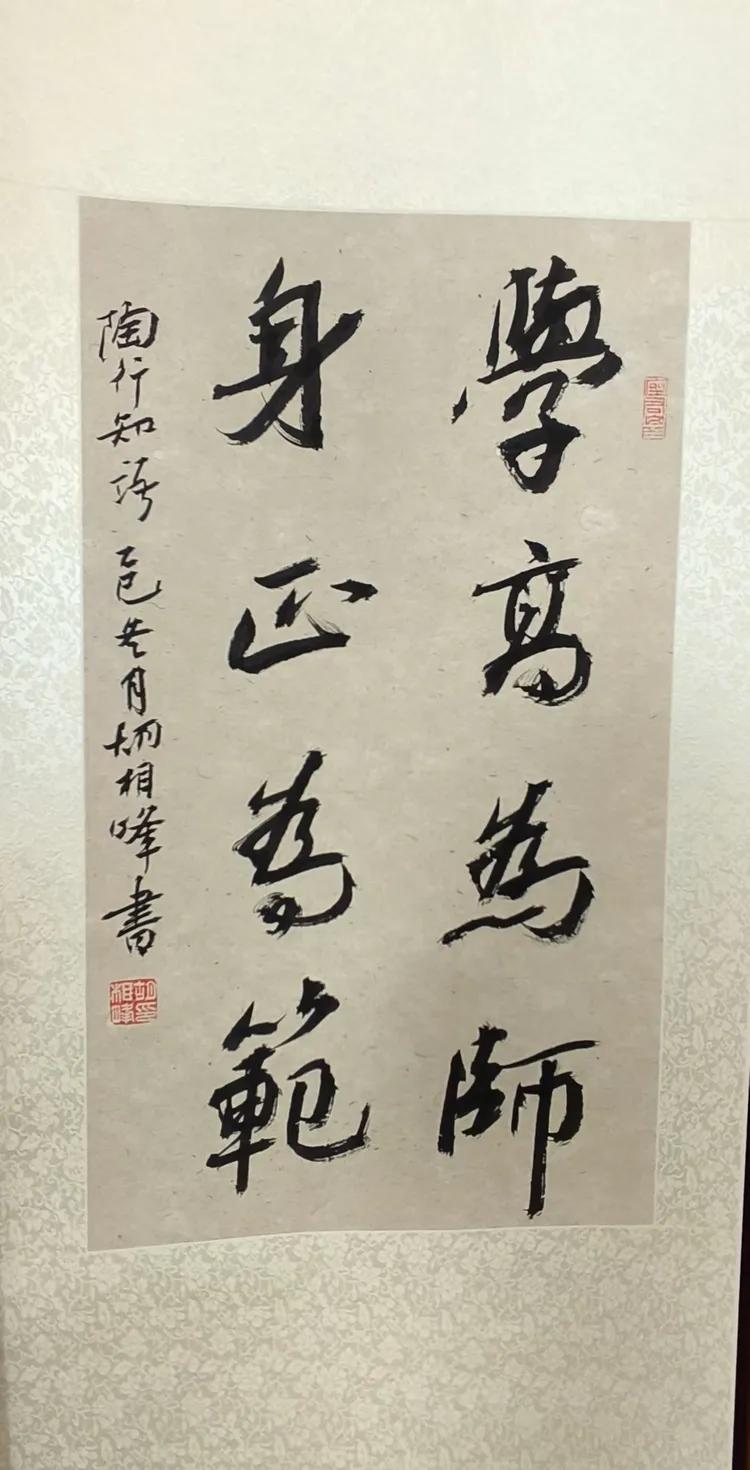 學高為師
身正為範
陶行知語 乙巳冬月胡相峰書
胡相峰印